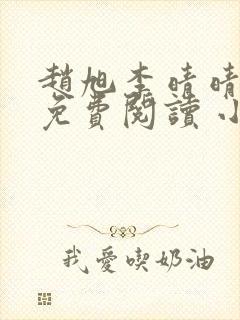 趙旭李晴晴
免費閱讀小
我愛喫奶油